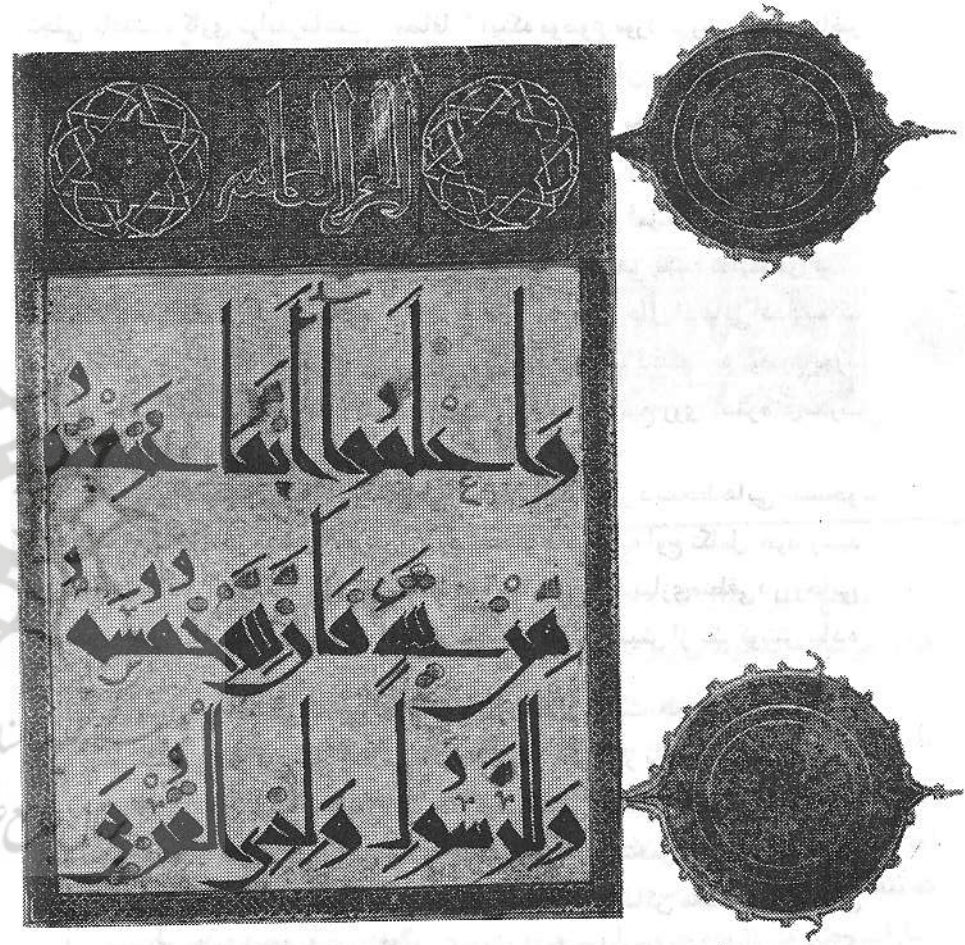 الجز العاشر
واعلموا أنما غنمتم
من شيء فأن لله خمسه
وللرسول ولذي القربى